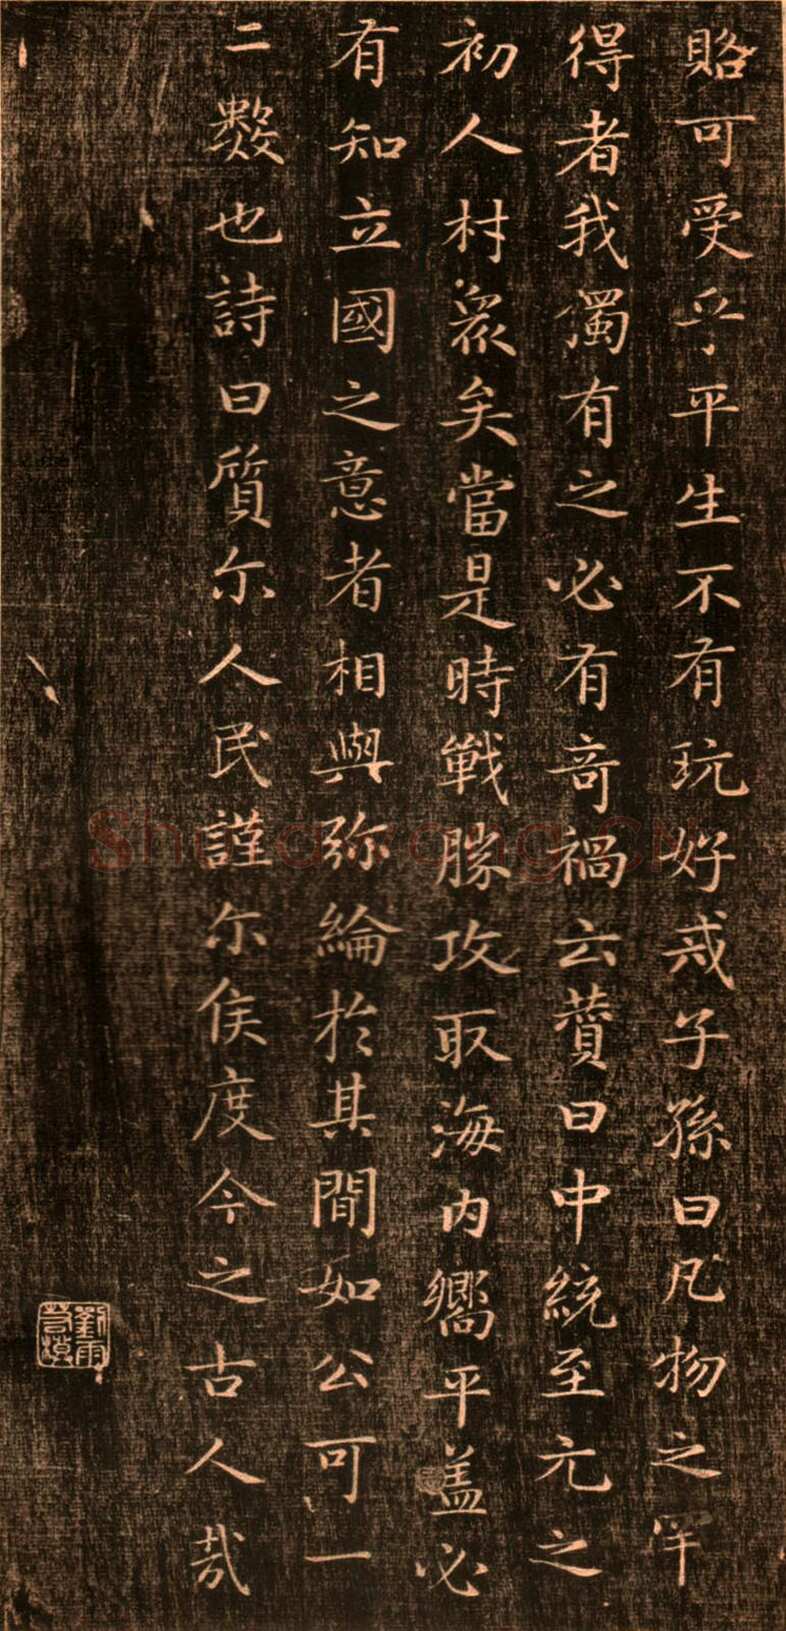 賂可受乎平生不有玩好戒子孫曰凡物之罕
得者我獨有之必有奇禍云賛曰中統至元之
初人材衆矣當是時戰勝攻取海内嚮平盖必
有知立國之意者相與弥綸於其間如公可一
二數也詩曰質尓人民謹尓侯度今之古人哉